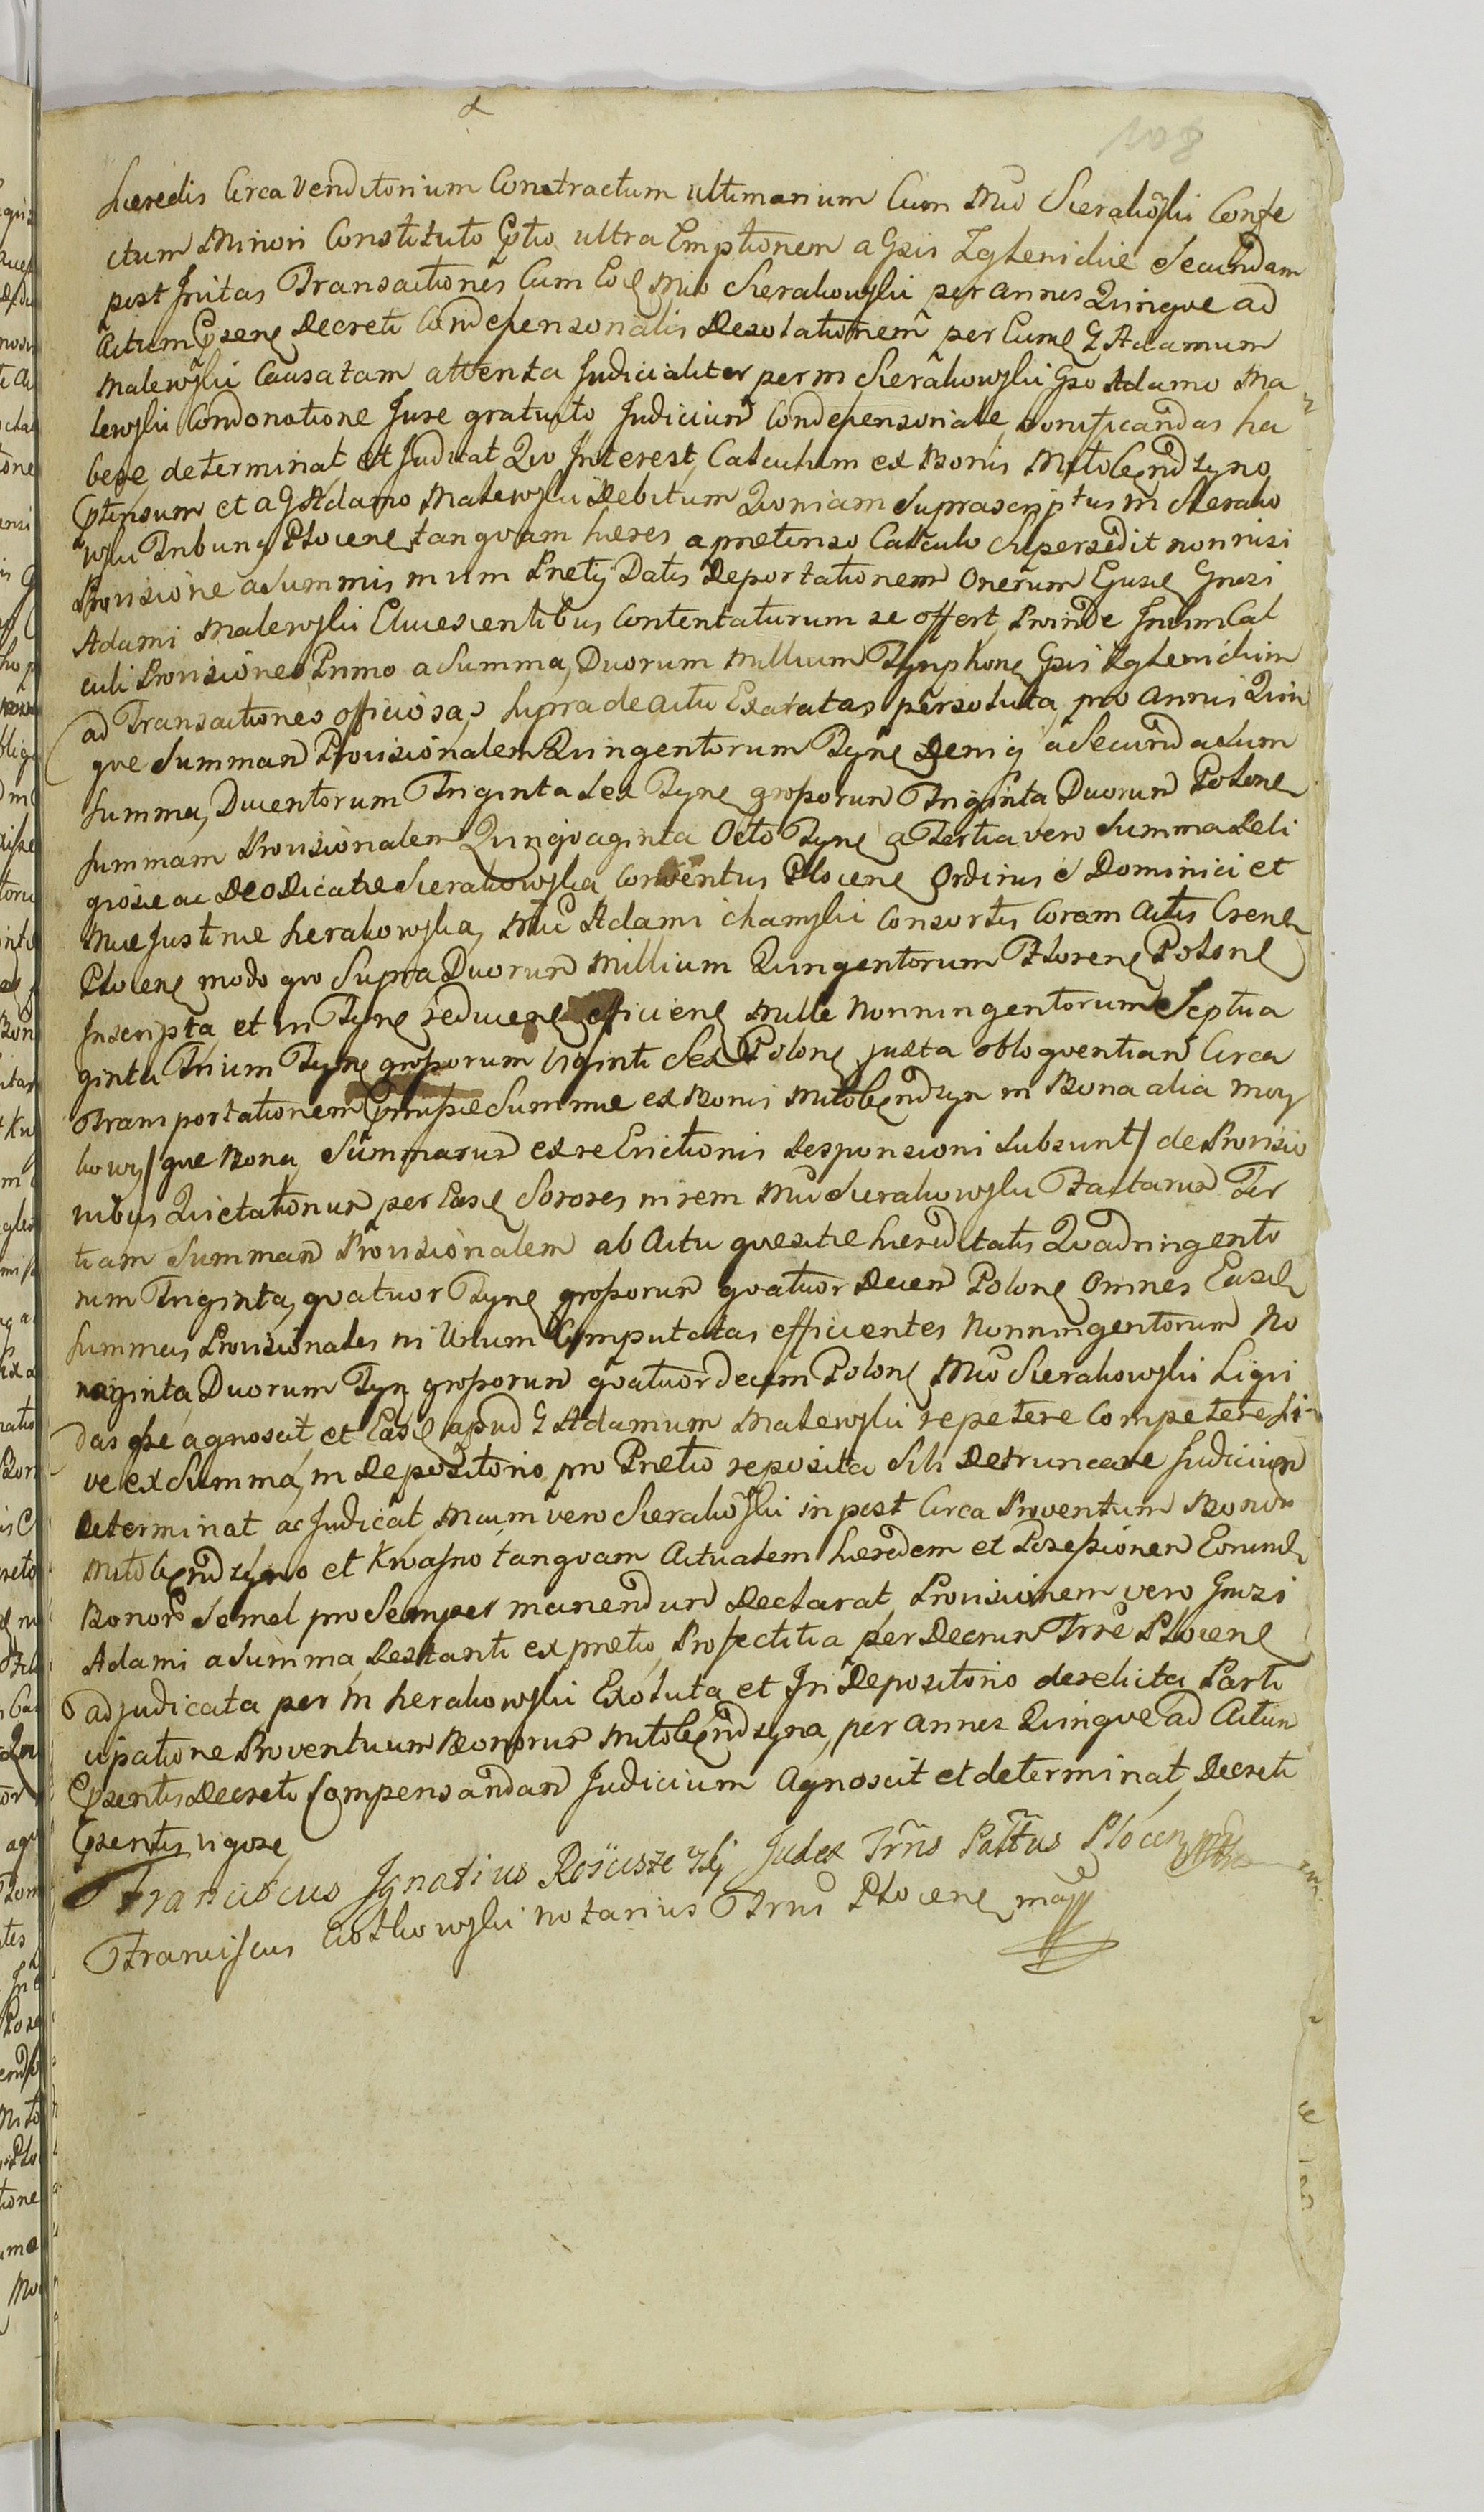 108
heredis Circa Venditorium Contractum ultimarium Cum Mco Sierakowski Confe
ctum Minori Constituto Ptio ultra Emptionem a Gsis Zglenickie Secundam
post Initas Transactiones Cum Eod Mco Sierakowski per annos Quinque ad
Actum Psene Decreti Condepensonialis Desolationem per Eund G Adamum
Malewski Causatam attenta Judicialiter per M Sierakowski Gso Adamo Ma
lewski Condonatione Jure gratuito Judicium Condepensoriale bonificandas ha
bere determinat et Judicat Quo Interest, Calculum ex Bonis Miłobędzyno
Ptensum et a G Adamo Malewski Debitum Quoniam Suprascriptus M Sierako
wski Tribung Plocene tanquam heres a pretenso Calculo Supersedit non nisi
Provisione a Summis in um Pretij Datis Deportationem Onerum Ejusd Gnosi
Adami Malewski Elucescentibus Contentaturum se offert, Proinde Inhim Cal
culi Provisiones Primo a Summa, Duorum Millium Tynphone Gsis Zglenickim
ad Transactiones officiosas Supra de actu Exaratas persoluta, pro Annis Quin
que Summam Provisionalem Quingentorum Tyne Deniq a Secunda Sum
Summa, Ducentorum Triginta Sex Tyne grossorum Triginta Duorum Polone
Summam Provisionalem Quinquaginta Octo Tyne a Tertia vero Summa Reli
giosæ ac Deo Dicatæ Sierakowska Conventus Plocene Ordinis S Dominici et
Mcæ Justinæ Sierakowska, Mci Adami Chamski Consortis Coram Actis Csene
Plocene modo quo Supra Duorum Millium Quingentorum Florene Polone
Inscripta, et in Tyne reducene efficiene Mille Nonningentorum Septua
ginta Trium Tyne grossorum Viginti Sex Polone juxta obloquentiam Circa
Transportationem Pmissæ Summæ ex Bonis Miłobędzyn in Bona alia Moy
kowy/ que Bona, Summarum ex re Evictionis Responsioni Subsunt/ de Provisio
nibus Quietationum per Easd Sorores in rem Mci Sierakowski Factarum Ter
tiam Summam Provisionalem ab Actu quesitæ hæreditatis Quadringento
rum Triginta, quatuor Tyne grossorum quatuor Decem Polone Omnes Easd
Summas Provisionales in Unum Computatas efficientes Nonningentorum No
naginta Duorum Tyn grossorum quatuordecim Polone Mco Sierakowski Liqui
das esse agnoscit, et Easd apud G Adamum Malewski repetere Competere Si
ve ex Summa, in Depositorio pro Pretio reposita Sibi Detruncare Judicium
Determinat ac Judicat, Mcum vero Sierakowski in post Circa Proventum Bonor
Miłobędzyno et Kwasno tanquam Actualem hæredem et Possessionem Eorund
Bonor Semel pro Semper manendum Declarat, Provisionem vero Gnosi
Adami a Summa Restanti ex pretio, Profectitia per Decrum Trre Plocene
adjudicata per M Sierakowski Exoluta, et In Depositorio derelicta Parti
cipatione Proventuum Bonorum Miłobędzyna, per annos Quinque ad Actum
Psentis Decreti Compensandam Judicium Agnoscit et determinat, Decreti
Psentis vigore
Franciscus Ignatius Judex Trris Plocen
Franciscus notarius Trris Plocene mpp